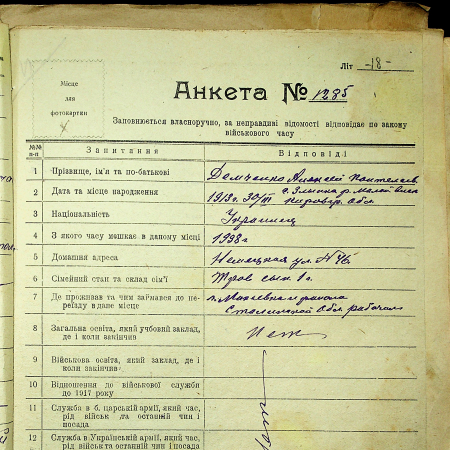 Літ -18-
Місце
для
фотокартки
Анкета № 1285
Заповнюється власноручно, за неправдиві відомості відповідає по закону
військового часу
№№ п-п
Запитання
Відповіді
1 Прізвище, ім'я та по-батькові Демченко Алексей
2 Дата та місце народження 1913г. 30/III с. Злынка
Кировогр. Обл
3 Національність Украинец
4 З якого часу мешкає в даному місці 1938г
5 Домашня адреса Немецкая ул. N 46
6 Сімейний стан та склад сім'ї сын 1г.
7 Де проживав та чим займався до пе-
реїзду в дане місце Сталинской Обл рабочим
8 Загальна освіта, який учбовий заклад,
де і коли закінчив Нет
9 Військова освіта, який заклад, де і
коли закінчив
10 Відношення до військової служби
до 1917 року
11 Служба в б. царській армії, який час,
рід військ та останній чин і
посада
12 Служба в Українській армії, який час,
рід військ та останній чин і посада